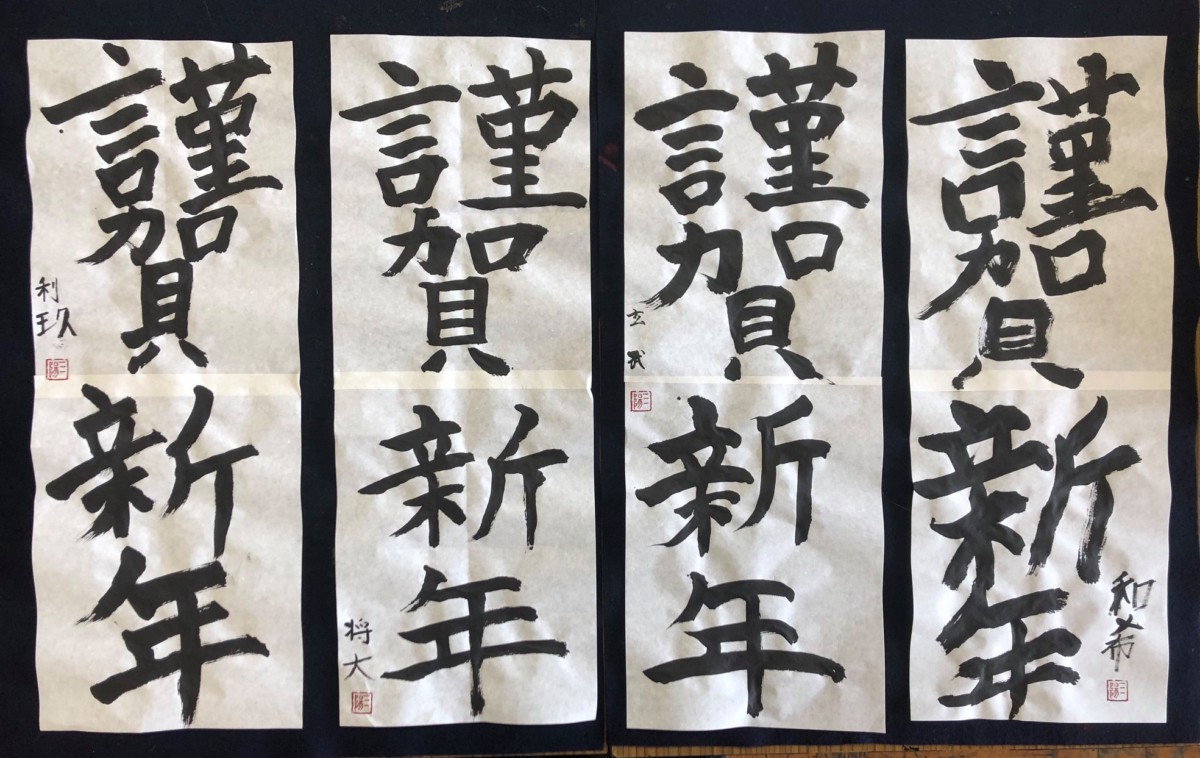 謹賀新年
利玖
謹賀新年
将大
謹賀新年
玄武
謹賀新年
和希